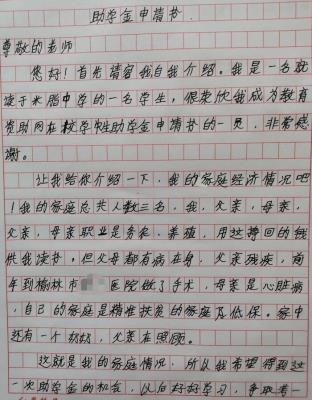 助学金申请书
尊敬的老师
您好!首先请容我自我介绍。我是一名就
读于米脂中学的一名学生,很荣欣我成为教育
资助网在校学生助学金申请书的一员,非常感
谢。
让我给你介绍一下,我的家庭经济情况吧
!我的家庭总共人数三名,我,父亲,母亲,
父亲,母亲职业是务农,养殖,用这挣回的钱
供我读书,但父母都有病在身,父亲残疾,前
年到榆林市 医院做了手术,母亲是心脏病
,自己的家庭是精准扶贫的家庭及低保。家中
还有一个奶奶,父亲在照顾。
这就是我的家庭情况,所以我希望得到这
一次助学金的机会,以后好好学习,争取考一